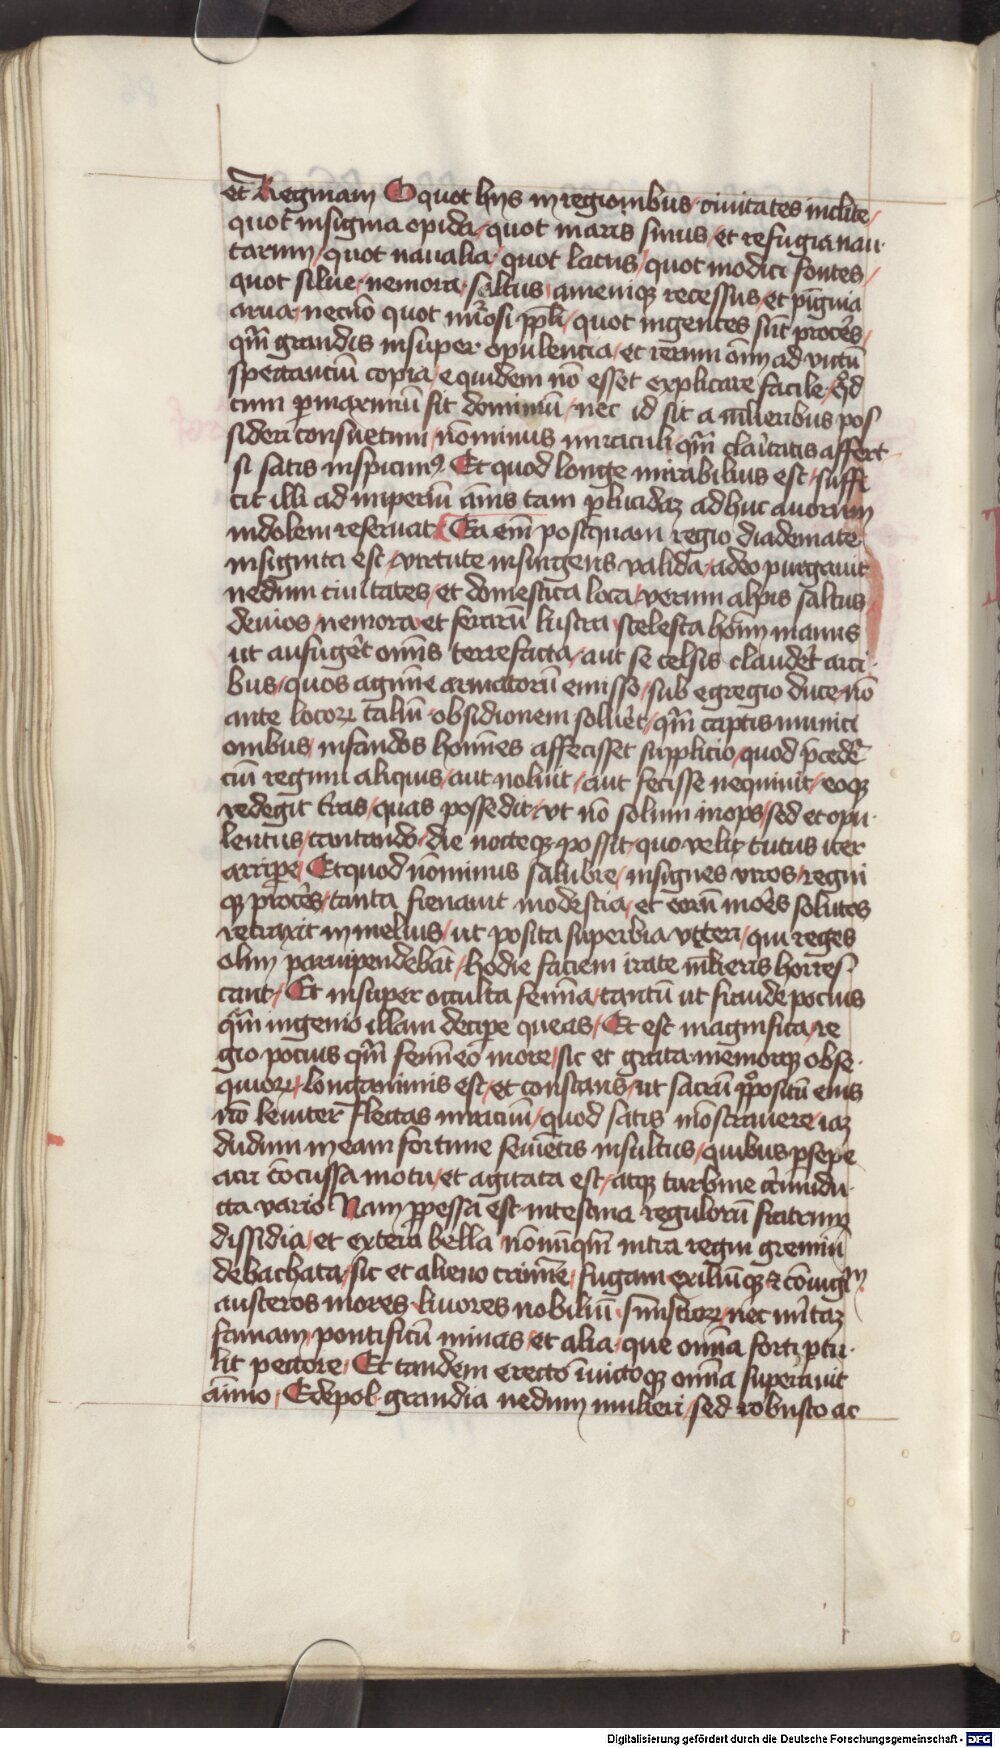 et Reginam O quot hijs in regionibus / ciuitates inclite /
quot insignia opida / quot maris sinus / et refugia nau
tarum / quot naualia / quot lacus / quot modici fontes /
quot silue / nemora / saltus / amenique recessus / et pīguia
arua / necnō quot nūosi ppli / quot ingentes sūt procēs /
qm̄ grandis insuper opulencia / et rerum oīm ad victū
spectanciū copia / equidem nō esset explicare facile / Qd
cum pmaximū sit dominiū / nec id sit a mlieribus pos
sideri consuetum / nōminus miraculi qm̄ claritatis affert
si satis inspicim9 Et quod longe mirabilius est / suffi
cit illi ad imperiū aīmus tam plucidaz adhuc auorum
indolem reseruat Ea em̄ postquam regio diademate
insignita est / virtute insurgens valida / adeo purgauit
nedum ciuitates / et domestica loca / verum alpis saltus
deuios / nemora et ferarū lustra / scelesta hom̄ manus
ut aufugēt om̄is terrefacta / aut se celsis claudēt arci
bus / quos agmīe armatorū emisso / sub egregio duce / nō
ante locoꝝ taliū obsidionem soluēt / qm̄ captis munici
onibus / infandos homīes affecisset supplicio / quod pcedē
ciū regum aliquis / aut noluit / aut fecisse nequiuit / eoque
redegit t̄ras / quas possedit / vt nō solum inops / sed et opu
lentus / cantando / die nocteque possit / quo velit tutus iter
arripe Et quod nōminus salubre / insignes viros / regni
que procēs / tanta frenauit modestia / et eorū mores solutos
retraxit in melius / ut posita superbia vetteri / qui reges
olim paruipendebāt / hodie faciem irate mlieris horres
cant / Et insuper occulta femīa / tantū ut fraude pocius
qm̄ ingenio illam decipe queas / Et est magnifica / re
gio pocius qm̄ femīeo more / sic et grata memorque obse
quioꝝ / longanimis est / et constans / ut sacrū ppositū eius
nō leuiter flectas in vacuū / quod satis mōstrauere / iaz
dudum in eam fortune seuientis insultus / quibus psepe
acri cōcussa motu / et agitata est / atque turbine
cta vario Nam ppessa est intestina regulorū fratrum
dissidia / et extera bella / nōnūqm̄ intra regni gremiū
debachata / sic et alieno crimīe / fugam exiliūque & cōiugīm
austeros mores / liuores nobiliū / sinistraꝝ nec mitaz
famam / pontificū minas / et alia / que omīa forti ptu
lit pectore / Et tandem erecto īuictoque omīa superauit
aīmo / Edepol grandia nedum mulieri / sed robusto ac
Digitalisierung gefördert durch die Deutsche Forschungsgemeinschaft - DFG